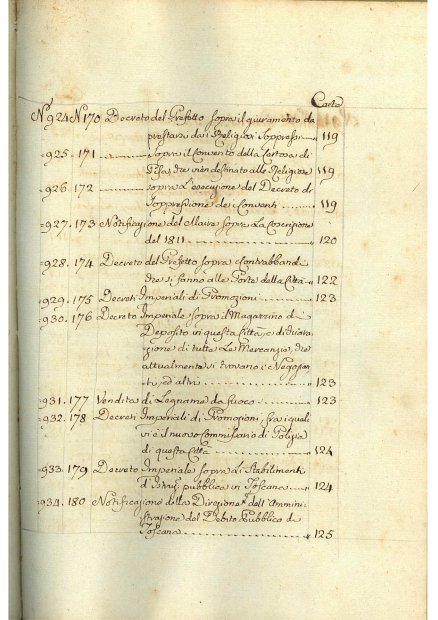 Carte
N.° 924 N.° 170 Decreto del Prefetto sopra il giuramento da
prestarsi dai Religiosi Soppressi 119
= 925. 171 sopra il Convento della Certosa di
Pisa, che vien destinato alle Religiose 119
= 926. 172 sopra l'esecuzione del Decreto di
Soppressione dei Conventi 119
= 927. 173 Notificazione del Maire sopra la Coscrizione
del 1811 120
= 928. 174 Decreto del Prefetto sopra i Contrabbandi
che si fanno alle Porte della Città 122
= 929. 175 Decreti Imperiali di Promozioni 123
= 930. 176 Decreto Imperiale sopra il Magazzino di
Deposito in questa Città e di
di tutte le Mercanzie, che
attualmente si trovano i Negozian
ti, ed altri 123
= 931. 177 Vendita di Legname da fuoco 123
= 932. 178 Decreti Imperiali di Promozioni, fra i quali
vi è il nuovo Commissario di Polizia
di questa Città 124
= 933. 179 Decreto Imperiale sopra li Stabilimenti
d'Istruz. pubblica in Toscana 124
= 934. 180 Notificazione della Direzione dell'Ammini
strazione del Debito Pubblico di
Toscana 125